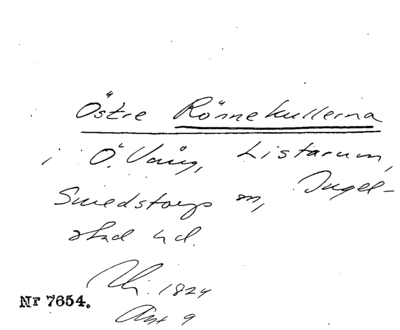 Östre Rönnekullerna
i Ö. Vång, Listarum,
Smedstorps sn, Ingel-
stad hd.
1824
Nr 7654.
9